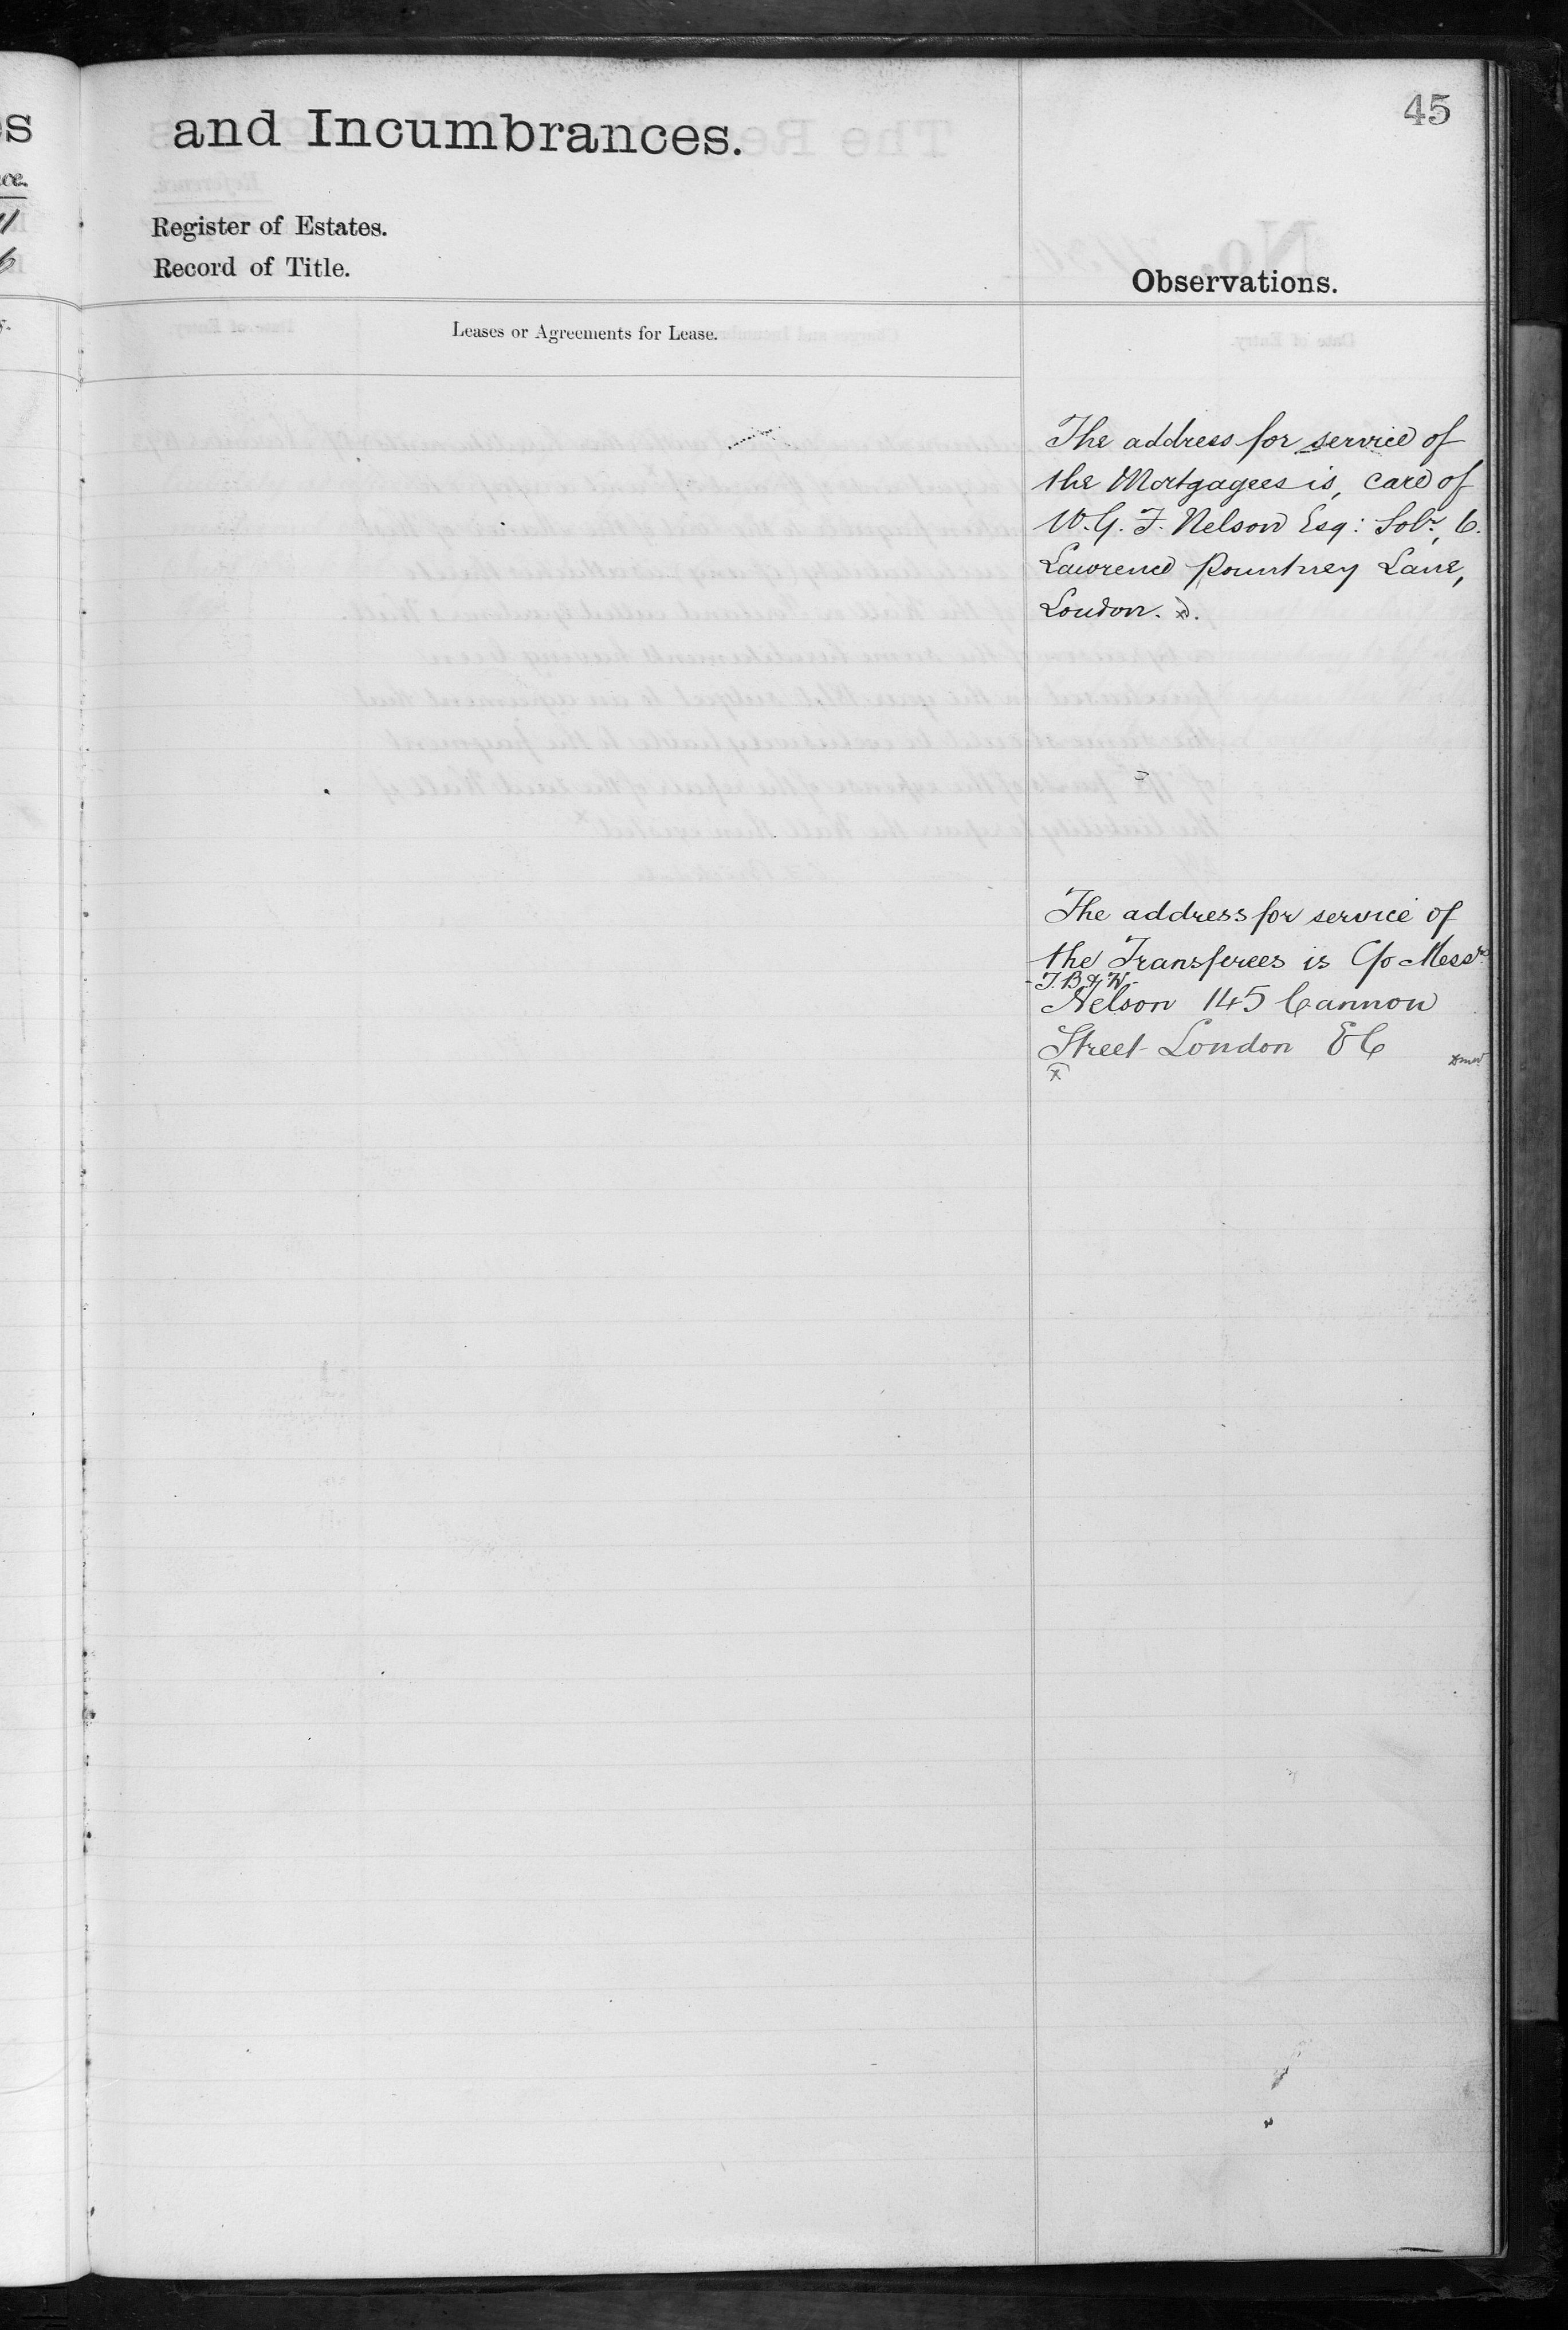 45
and Incumbrances.
Register of Estates.
Record of Title.
Observations.
Leases or Agreements for Lease.
The address for service of
the Mortgagees is, care of
W. G. F. Nelson Esq: Solr, 6.
Lawrence Pountney Lane,
London.
The address for service of
the Transferees is C/o Messrs
T. B & W
Nelson 145 Cannon
Street London E C